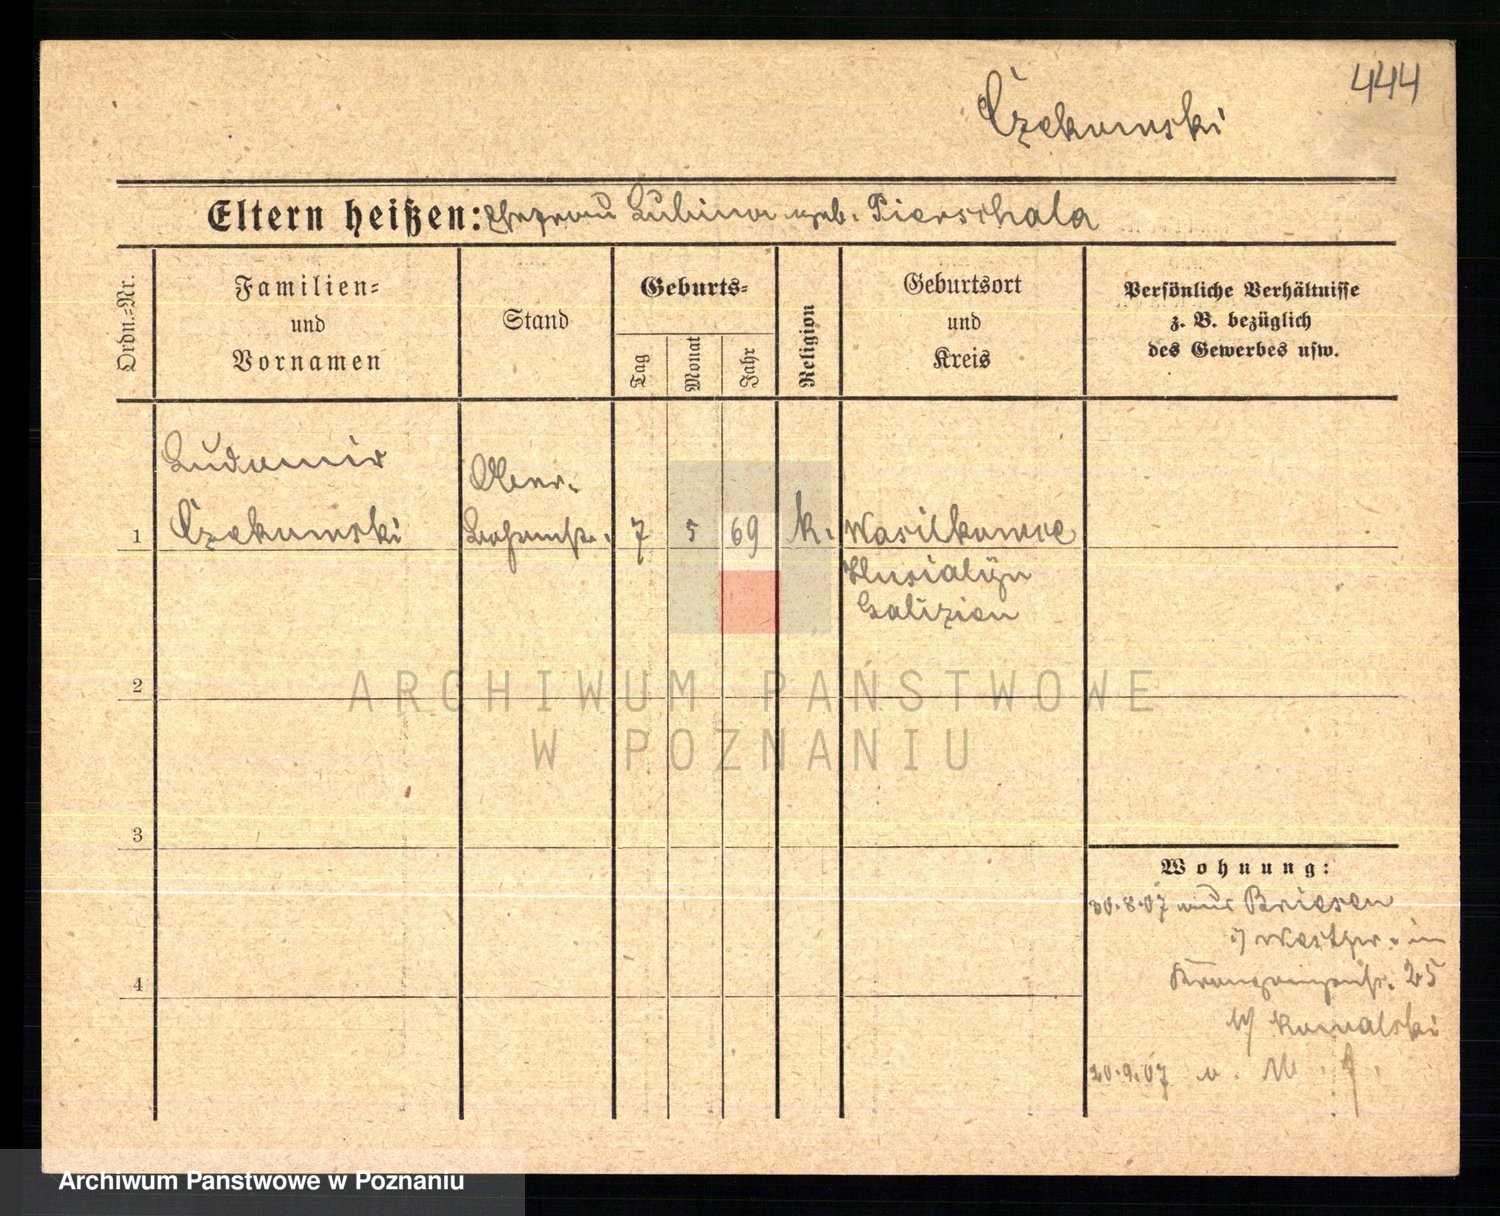 444
Czekumski
Eltern heißen: Ehefrau Lubina geb. Pierschala
Ordn.-Nr.
Familien-
und
Vornamen
Stand
Geburts-
Tag
Monat
Jahr
Religion
Geburtsort
und
Kreis
Persönliche Verhältnisse
z. B. bezüglich
des Gewerbes usw.
Ludomir
Ober-
1 Czekumski 7 5 69 k. Wasilkowce
Husiatyn
Galizien
2
ARCHIWUM PAŃSTWOWE
W POZNANIU
3
Wohnung:
30.8.07 aus Briesen
i/ Westpr. in
4
25
b/ Kowalski
20.9.07
Archiwum Państwowe w Poznaniu